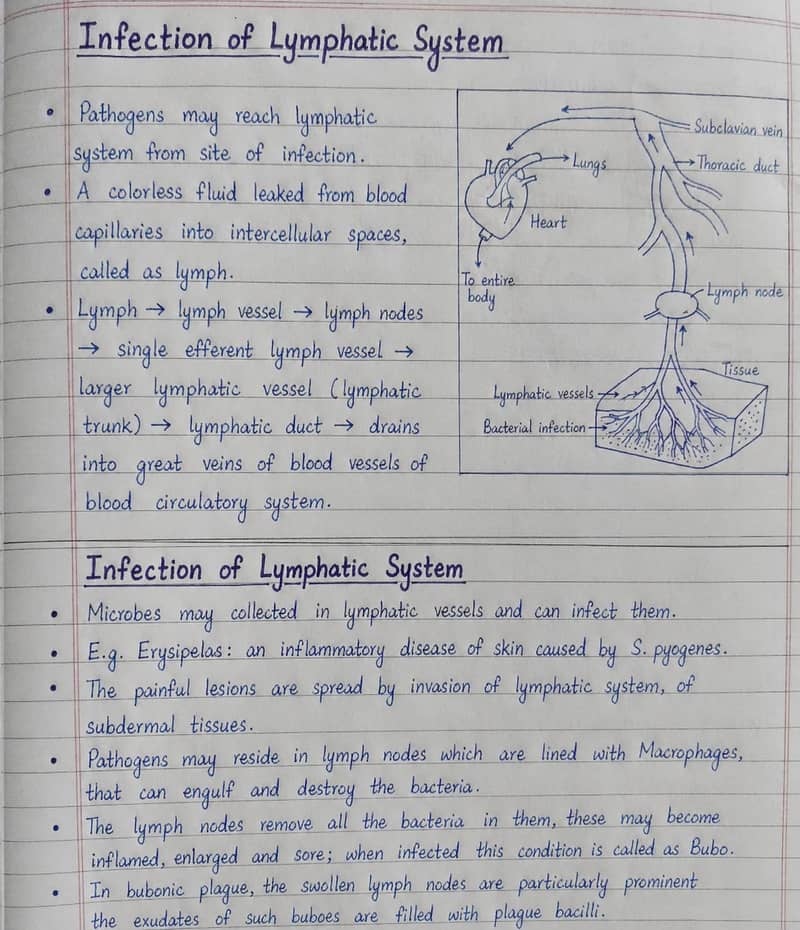 Infection of Lymphatic System
• Pathogens may reach lymphatic
system from site of infection.
• A colorless fluid leaked from blood
capillaries into intercellular spaces,
called as lymph.
• Lymph → lymph vessel → lymph nodes
→ single efferent lymph vessel →
larger lymphatic vessel (lymphatic
trunk) → lymphatic duct → drains
into great veins of blood vessels of
blood circulatory system.
Subclavian vein
Lungs
Thoracic duct
Heart
To entire
body
Lymph node
Tissue
Lymphatic vessels
Bacterial infection
Infection of Lymphatic System
• Microbes may collected in lymphatic vessels and can infect them.
• E.g. Erysipelas: an inflammatory disease of skin caused by S. pyogenes.
• The painful lesions are spread by invasion of lymphatic system, of
subdermal tissues.
• Pathogens may reside in lymph nodes which are lined with Macrophages,
that can engulf and destroy the bacteria.
• The lymph nodes remove all the bacteria in them, these may become
inflamed, enlarged and sore; when infected this condition is called as Bubo.
• In bubonic plague, the swollen lymph nodes are particularly prominent
the exudates of such buboes are filled with plague bacilli.